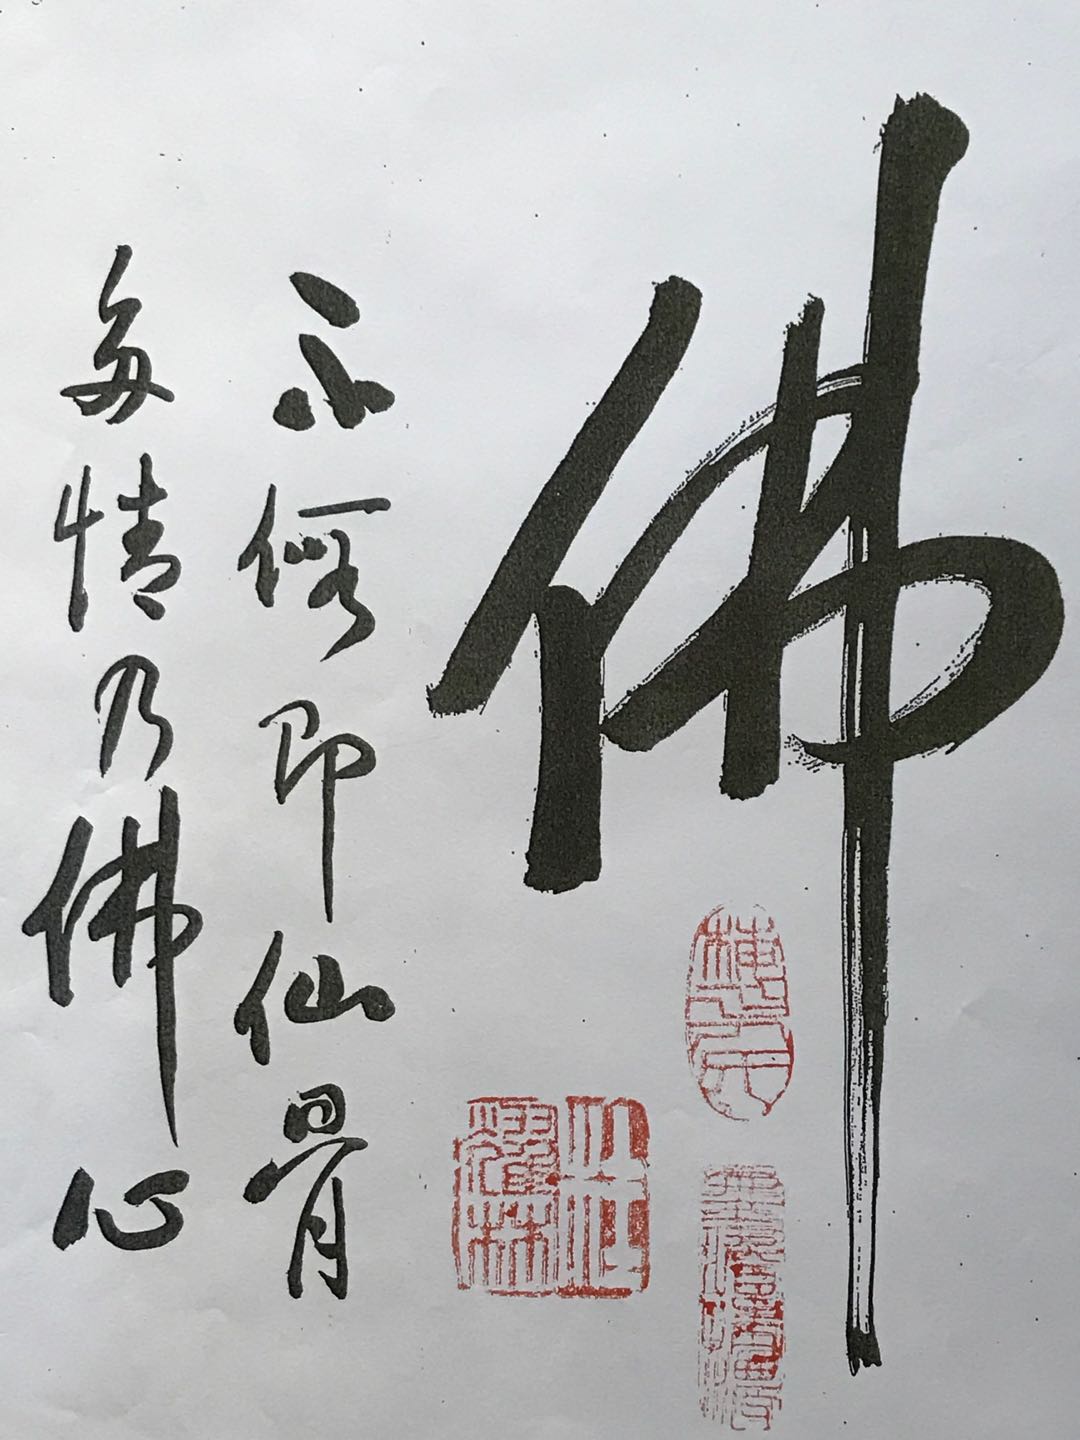 佛
不俗即仙骨
多情乃佛心